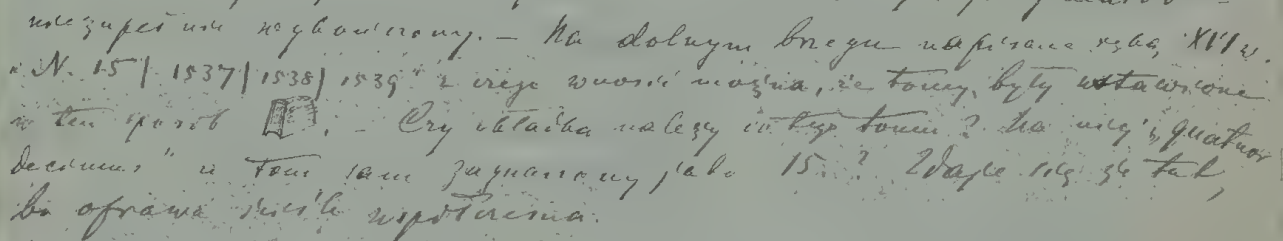 niezupełnie wykończony. – Na dolnym brzegu napisane ręką XVI w.
"N. 15 | 1537 | 1538 | 1539" z czego wnosić można, że tomy były ustawione
w ten sposób . – Czy okładka należy do tego tomu? Na niej "quatuor
decimus" a tom sam zaznaczony jako 15.? Zdaje się że tak,
bo oprawa ściśle współczesna.